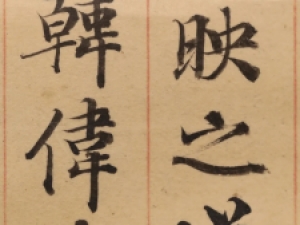 映之
韓偉